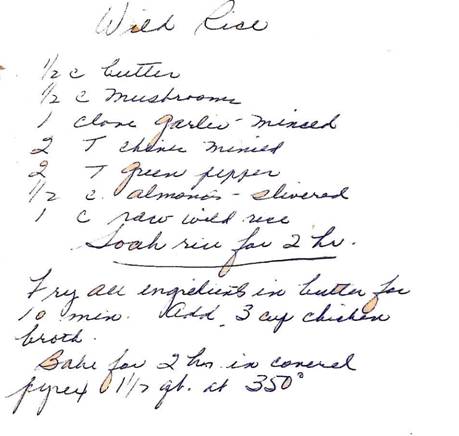 Wild Rice
1/2 c butter
1/2 c mushrooms
1 clove garlic - minsed
2 T chives minsed
2 T green pepper
1/2 c. almonds - slivered
1 c raw wild rice
Soak rice for 2 hr.
Fry all ingredients in butter for
10 min. Add 3 cup chicken
broth.
Bake for 2 hrs. in covered
pyrex 1 1/2 qt. at 350°